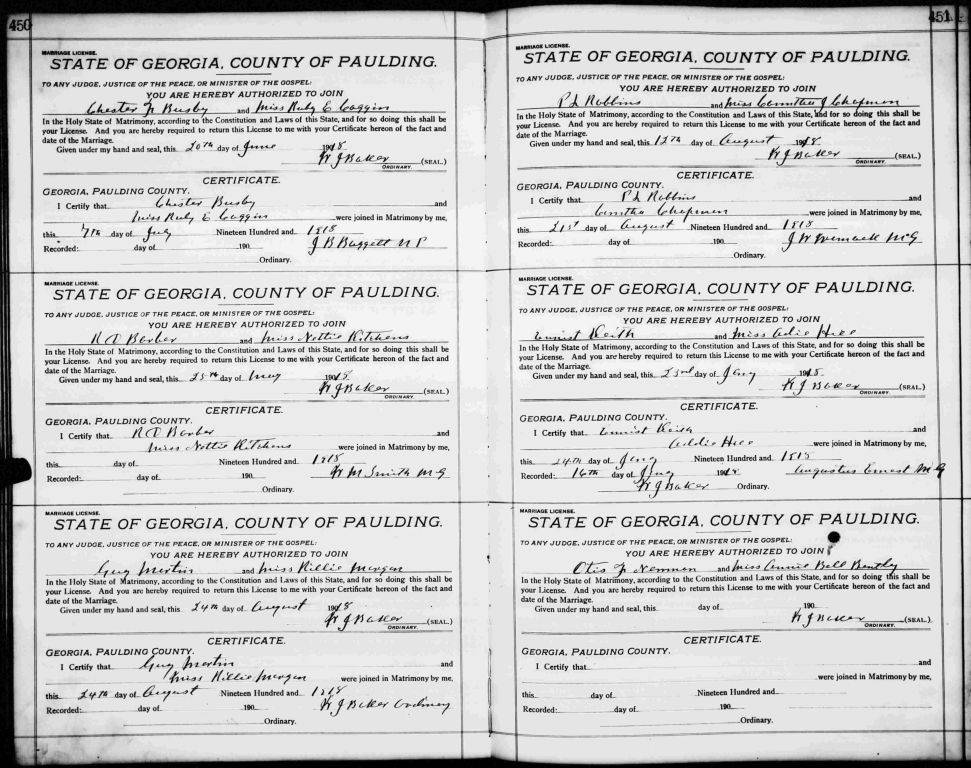 450
MARRIAGE LICENSE.
STATE OF GEORGIA, COUNTY OF PAULDING.
TO ANY JUDGE, JUSTICE OF THE PEACE, OR MINISTER OF THE GOSPEL:
YOU ARE HEREBY AUTHORIZED TO JOIN
Chester Jr Busby and Miss Ruby E Coggin
In the Holy State of Matrimony, according to the Constitution and Laws of this State, and for so doing this shall be
your License. And you are hereby required to return this License to me with your Certificate hereon of the fact and
date of the Marriage.
Given under my hand and seal, this 20th day of June 1918
W J Baker (SEAL.)
ORDINARY.
CERTIFICATE.
GEORGIA, PAULDING COUNTY.
I Certify that Chester Busby and
Miss Ruby E Coggin were joined in Matrimony by me,
this 7th day of July Nineteen Hundred and 1918
Recorded: day of 190 J B Baggett N P
Ordinary.
MARRIAGE LICENSE.
STATE OF GEORGIA, COUNTY OF PAULDING.
TO ANY JUDGE, JUSTICE OF THE PEACE, OR MINISTER OF THE GOSPEL:
YOU ARE HEREBY AUTHORIZED TO JOIN
R D Barber and Miss Nettie Kitchens
In the Holy State of Matrimony, according to the Constitution and Laws of this State, and for so doing this shall be
your License. And you are hereby required to return this License to me with your Certificate hereon of the fact and
date of the Marriage.
Given under my hand and seal, this 25th day of May 1918
W J Baker (SEAL.)
ORDINARY.
CERTIFICATE.
GEORGIA, PAULDING COUNTY.
I Certify that R D Barber and
Miss Nettie Kitchens were joined in Matrimony by me,
this day of Nineteen Hundred and 1918
Recorded: day of 190 W M Smith M G
Ordinary.
MARRIAGE LICENSE.
STATE OF GEORGIA, COUNTY OF PAULDING.
TO ANY JUDGE, JUSTICE OF THE PEACE, OR MINISTER OF THE GOSPEL:
YOU ARE HEREBY AUTHORIZED TO JOIN
Guy Martin and Miss Millie Morgan
In the Holy State of Matrimony, according to the Constitution and Laws of this State, and for so doing this shall be
your License. And you are hereby required to return this License to me with your Certificate hereon of the fact and
date of the Marriage.
Given under my hand and seal, this 24th day of August 1918
W J Baker (SEAL.)
ORDINARY.
CERTIFICATE.
GEORGIA, PAULDING COUNTY.
I Certify that Guy Martin and
Miss Millie Morgan were joined in Matrimony by me,
this 24th day of August Nineteen Hundred and 1918
Recorded: day of 190 W J Baker Ordinary
Ordinary.
451
MARRIAGE LICENSE.
STATE OF GEORGIA, COUNTY OF PAULDING.
TO ANY JUDGE, JUSTICE OF THE PEACE, OR MINISTER OF THE GOSPEL:
YOU ARE HEREBY AUTHORIZED TO JOIN
P L Robbins and Miss J Chapman
In the Holy State of Matrimony, according to the Constitution and Laws of this State, and for so doing this shall be
your License. And you are hereby required to return this License to me with your Certificate hereon of the fact and
date of the Marriage.
Given under my hand and seal, this 12th day of August 1918
W J Baker (SEAL.)
ORDINARY.
CERTIFICATE.
GEORGIA, PAULDING COUNTY.
I Certify that P L Robbins and
Chapman were joined in Matrimony by me,
this 21st day of August Nineteen Hundred and 1918
Recorded: day of 190 J W Womack M G
Ordinary.
MARRIAGE LICENSE.
STATE OF GEORGIA, COUNTY OF PAULDING.
TO ANY JUDGE, JUSTICE OF THE PEACE, OR MINISTER OF THE GOSPEL:
YOU ARE HEREBY AUTHORIZED TO JOIN
Ernist Keith and Miss Adie Hill
In the Holy State of Matrimony, according to the Constitution and Laws of this State, and for so doing this shall be
your License. And you are hereby required to return this License to me with your Certificate hereon of the fact and
date of the Marriage.
Given under my hand and seal, this 23rd day of Jany 1918
W J Baker (SEAL.)
ORDINARY.
CERTIFICATE.
GEORGIA, PAULDING COUNTY.
I Certify that Ernist Keith and
Addie Hill were joined in Matrimony by me,
this 24th day of Jany Nineteen Hundred and 1918
Recorded: 16th day of 191 Augustus Ernest M G
W J Baker Ordinary.
MARRIAGE LICENSE.
STATE OF GEORGIA, COUNTY OF PAULDING.
TO ANY JUDGE, JUSTICE OF THE PEACE, OR MINISTER OF THE GOSPEL:
YOU ARE HEREBY AUTHORIZED TO JOIN
Otis Jr Newman and Miss Annie Bell Bently
In the Holy State of Matrimony, according to the Constitution and Laws of this State, and for so doing this shall be
your License. And you are hereby required to return this License to me with your Certificate hereon of the fact and
date of the Marriage.
Given under my hand and seal, this day of 190
W J Baker (SEAL.)
ORDINARY.
CERTIFICATE.
GEORGIA, PAULDING COUNTY.
I Certify that and
were joined in Matrimony by me,
this day of Nineteen Hundred and
Recorded: day of 190
Ordinary.